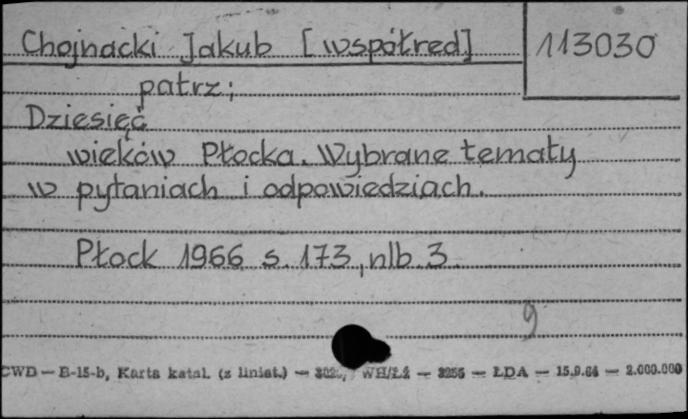 Chojnacki Jakub [współred] 113030
patrz;
Dziesięć
wieków Płocka. Wybrane tematy
w pytaniach i odpowiedziach.
Płock 1966 s. 173, nlb. 3.
9
CWD — B-15-b, Karta katal. (z liniat.) — WH/Łż — 3256 — ŁDA — 15.9.64 — 2.000.000